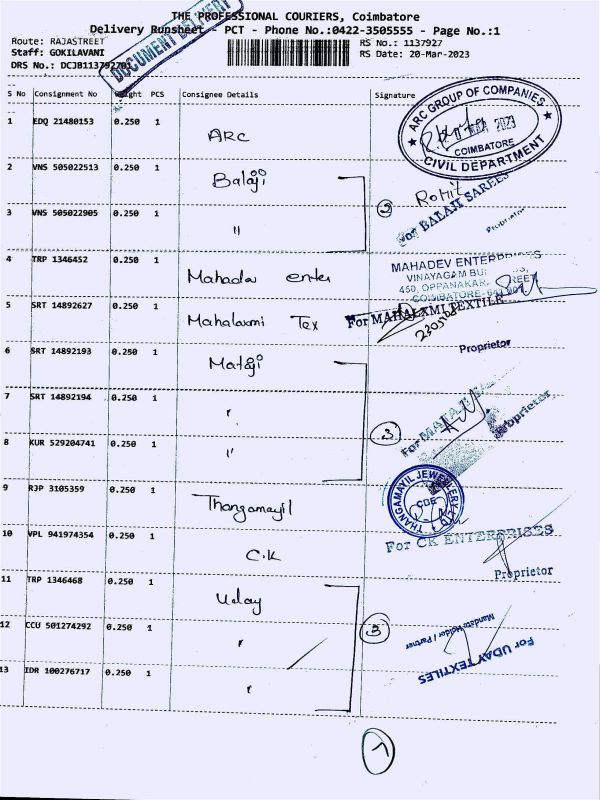 THE PROFESSIONAL COURIERS, Coimbatore
Delivery Runsheet - PCT - Phone No.:0422-3505555 - Page No.:1
Route: RAJASTREET
Staff: GOKILAVANI
DRS No.: DCJB113792701
RS No.: 1137927
RS Date: 20-Mar-2023
DOCUMENT DELIVERY
S No Consignment No Weight PCS Consignee Details Signature
1 EDQ 21480153 0.250 1 ARC
ARC GROUP OF COMPANIES
MAR 2023
COIMBATORE
CIVIL DEPARTMENT
2 VNS 505022513 0.250 1 Balaji
Rohit
3 VNS 505022905 0.250 1 "
2
For BALAJI SAREES
Proprietor
4 TRP 1346452 0.250 1 Mahadev enter
MAHADEV ENTERPRISES
VINAYAGAM
450, OPPANAKAR STREET
COIMBATORE-641 001
5 SRT 14892627 0.250 1 Mahalaxmi Tex
For MAHALAXMI TEXTILE
Proprietor
6 SRT 14892193 0.250 1 Mataji
7 SRT 14892194 0.250 1 "
3
For
Proprietor
8 KUR 529204741 0.250 1 "
9 RJP 3105359 0.250 1 Thangamayil
THANGAMAYIL JEWELLERY LTD
CBE
10 VPL 941974354 0.250 1 C.K
For CK ENTERPRISES
Proprietor
11 TRP 1346468 0.250 1 Uday
12 CCU 501274292 0.250 1 "
3
For UDAY TEXTILES
Mandate Holder / Partner
13 IDR 100276717 0.250 1 "